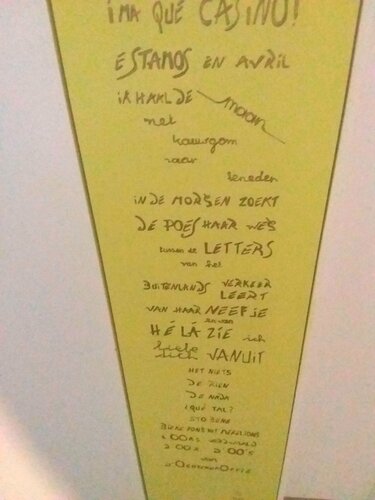 ¡MA QUÉ CASINO!
ESTAMOS EN AVRIL
iK HAAL DE maan
met
kauwgom
naar
beneden
IN DE MORGEN ZOEKT
DE POES HAAR WEG
tussen de LETTERS
van het
BUITENLANDS VERKEER
LEERT
VAN HAAR NEEFJE
HÉ LÀ ZIE ich
liebe
dich VANUIT
HET NIETS
DE RIEN
DE NADA
¿QUÉ TAL?
STO BENE
van